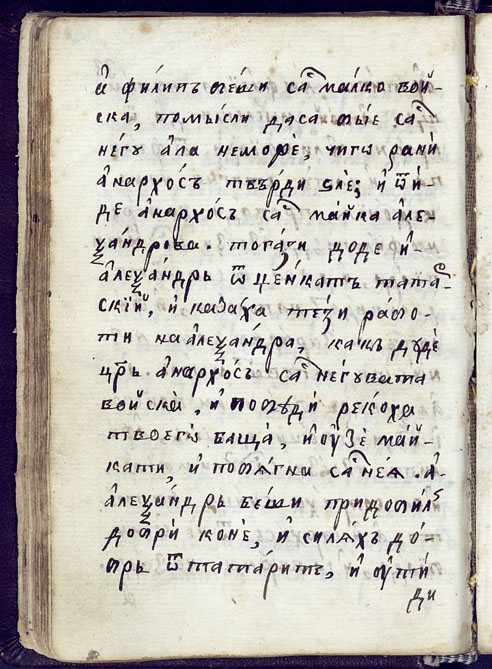 а҆ филипъ бе́ши са҆ ма́лко вой-
ска, помы́сли даса бы́е са҆
не́гу а҆ла немо́же, чигѡ ра́ни
а҆нархо́съ твъ́рди ѕле; и҆ ѿи́-
де а҆нархо́съ са҆ ма́йка а҆ле-
ѯа́ндрова. тога́зи до́де и҆
а҆леѯа́ндрь ѿ це́нкатъ тата́р-
скїй, и҆ каза́ха те́зи ра́бо-
ти на а҆леѯа́ндра, какъ до́де
цр҃ь а҆нархо́съ са҆ не́гувата
войска̀, и҆ победѝ реко́ха
твоегѡ̀ баща̀, и҆ ѹ҆зѐ ма́й-
кати, и҆ побѧ́гна са҆ не́ѧ. а҆
а҆леѯа́ндрь бе́ши придоби́лъ
добрѝ конѐ, и҆ силѧ́хъ до́-
брь ѿ тата́рить, и҆ ѹ҆пти́
ди